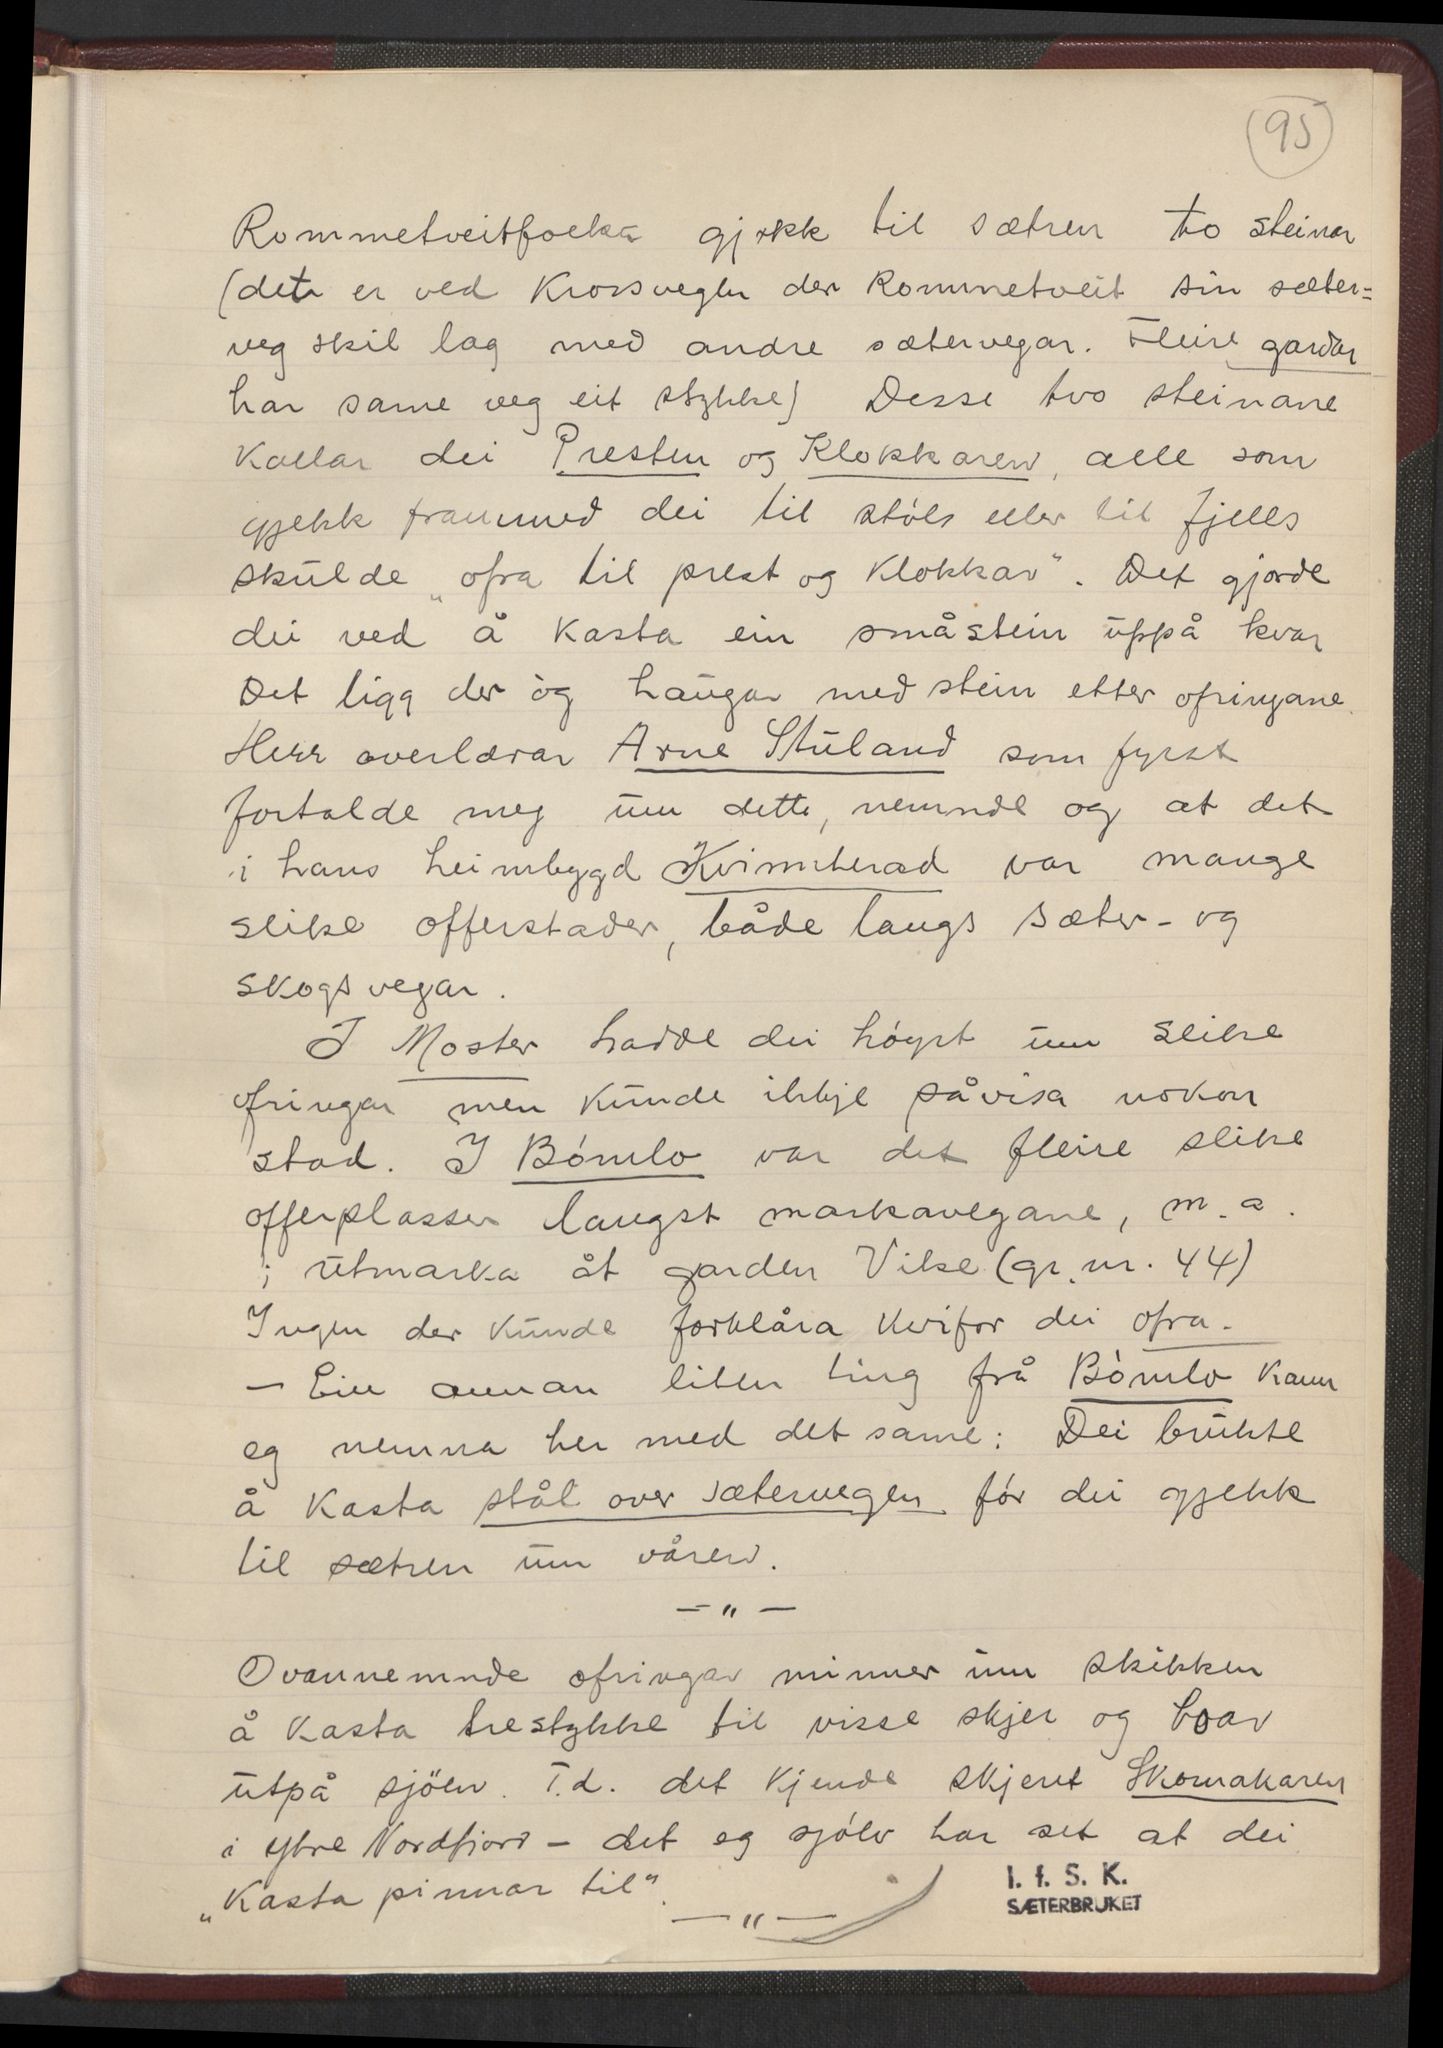 95
Rommetveitfolka gjekk til sætren to steinar
(det er ved Krossvegen der Rommetveit sin sæter=
veg skil lag med andre sætervegar. Fleire gardar
har same veg eit stykke) Desse tvo steinane
kallar dei Presten og Klokkaren, alle som
gjekk frammed dei til støls eller til fjells
skulde „ofra til prest og klokkar". Det gjorde
dei ved å kasta ein småstein uppå kvar
Det ligg der òg haugar med stein etter ofringane.
Herr overlærar Arne Stuland som fyrst
fortalde meg um dette, nemnde og at det
i hans heimbygd Kvinnherad var mange
slike offerstader, både langs sæter- og
skogsvegar.
I Moster hadde dei høyrt um slike
ofringar men kunde ikkje påvisa nokon
stad. I Bómlo var det fleire slike
offerplasser langst markavegane, m.a.
i utmarka åt garden Vike (gr.nr. 44)
Ingen der kunde forklåra kvifor dei ofra.
– Ein annan liten ting frå Bómlo kann
eg nemna her med det same: Dei brukte
å kasta stål over sætervegen før dei gjekk
til sætren um våren.
– " –
Ovannemnde ofringar minner um skikken
å kasta trestykke til visse skjer og boar
utpå sjöen. T.d. det kjende skjeret Skomakaren
i ytre Nordfjord – det eg sjólv har set at dei
„kasta pinnar til".
– " –
I. f. S. K.
SÆTERBRUKET